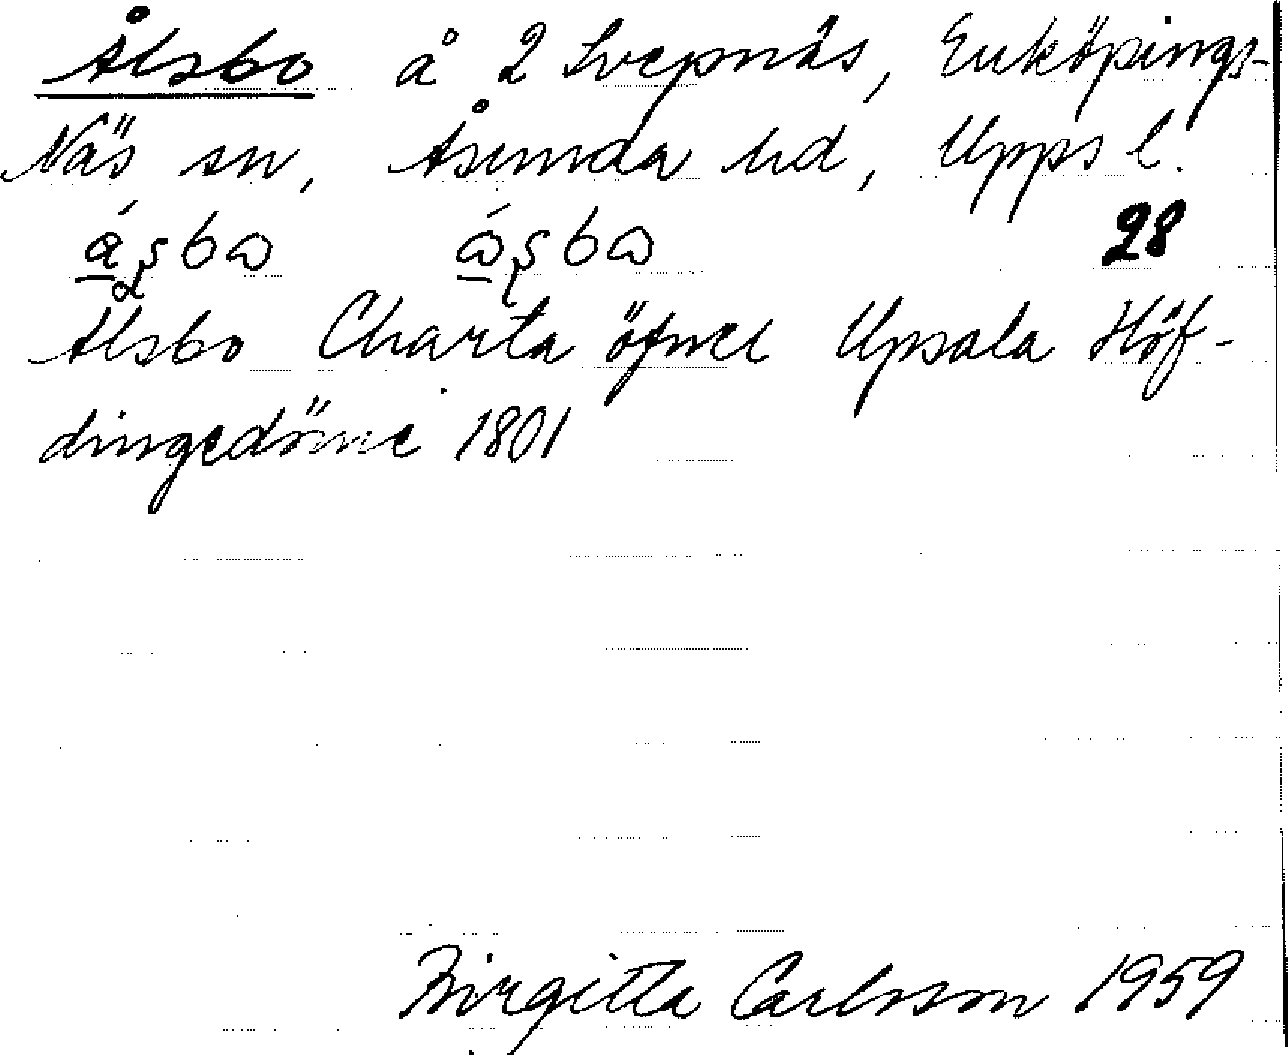 Ålsbo å 2 Svepnäs, Enköpings-
Näs sn, Åsunda hd, Upps l.
28
Ålsbo Charta öfver Upsala Höf-
dingedöme 1801
Birgitta Carlsson 1959